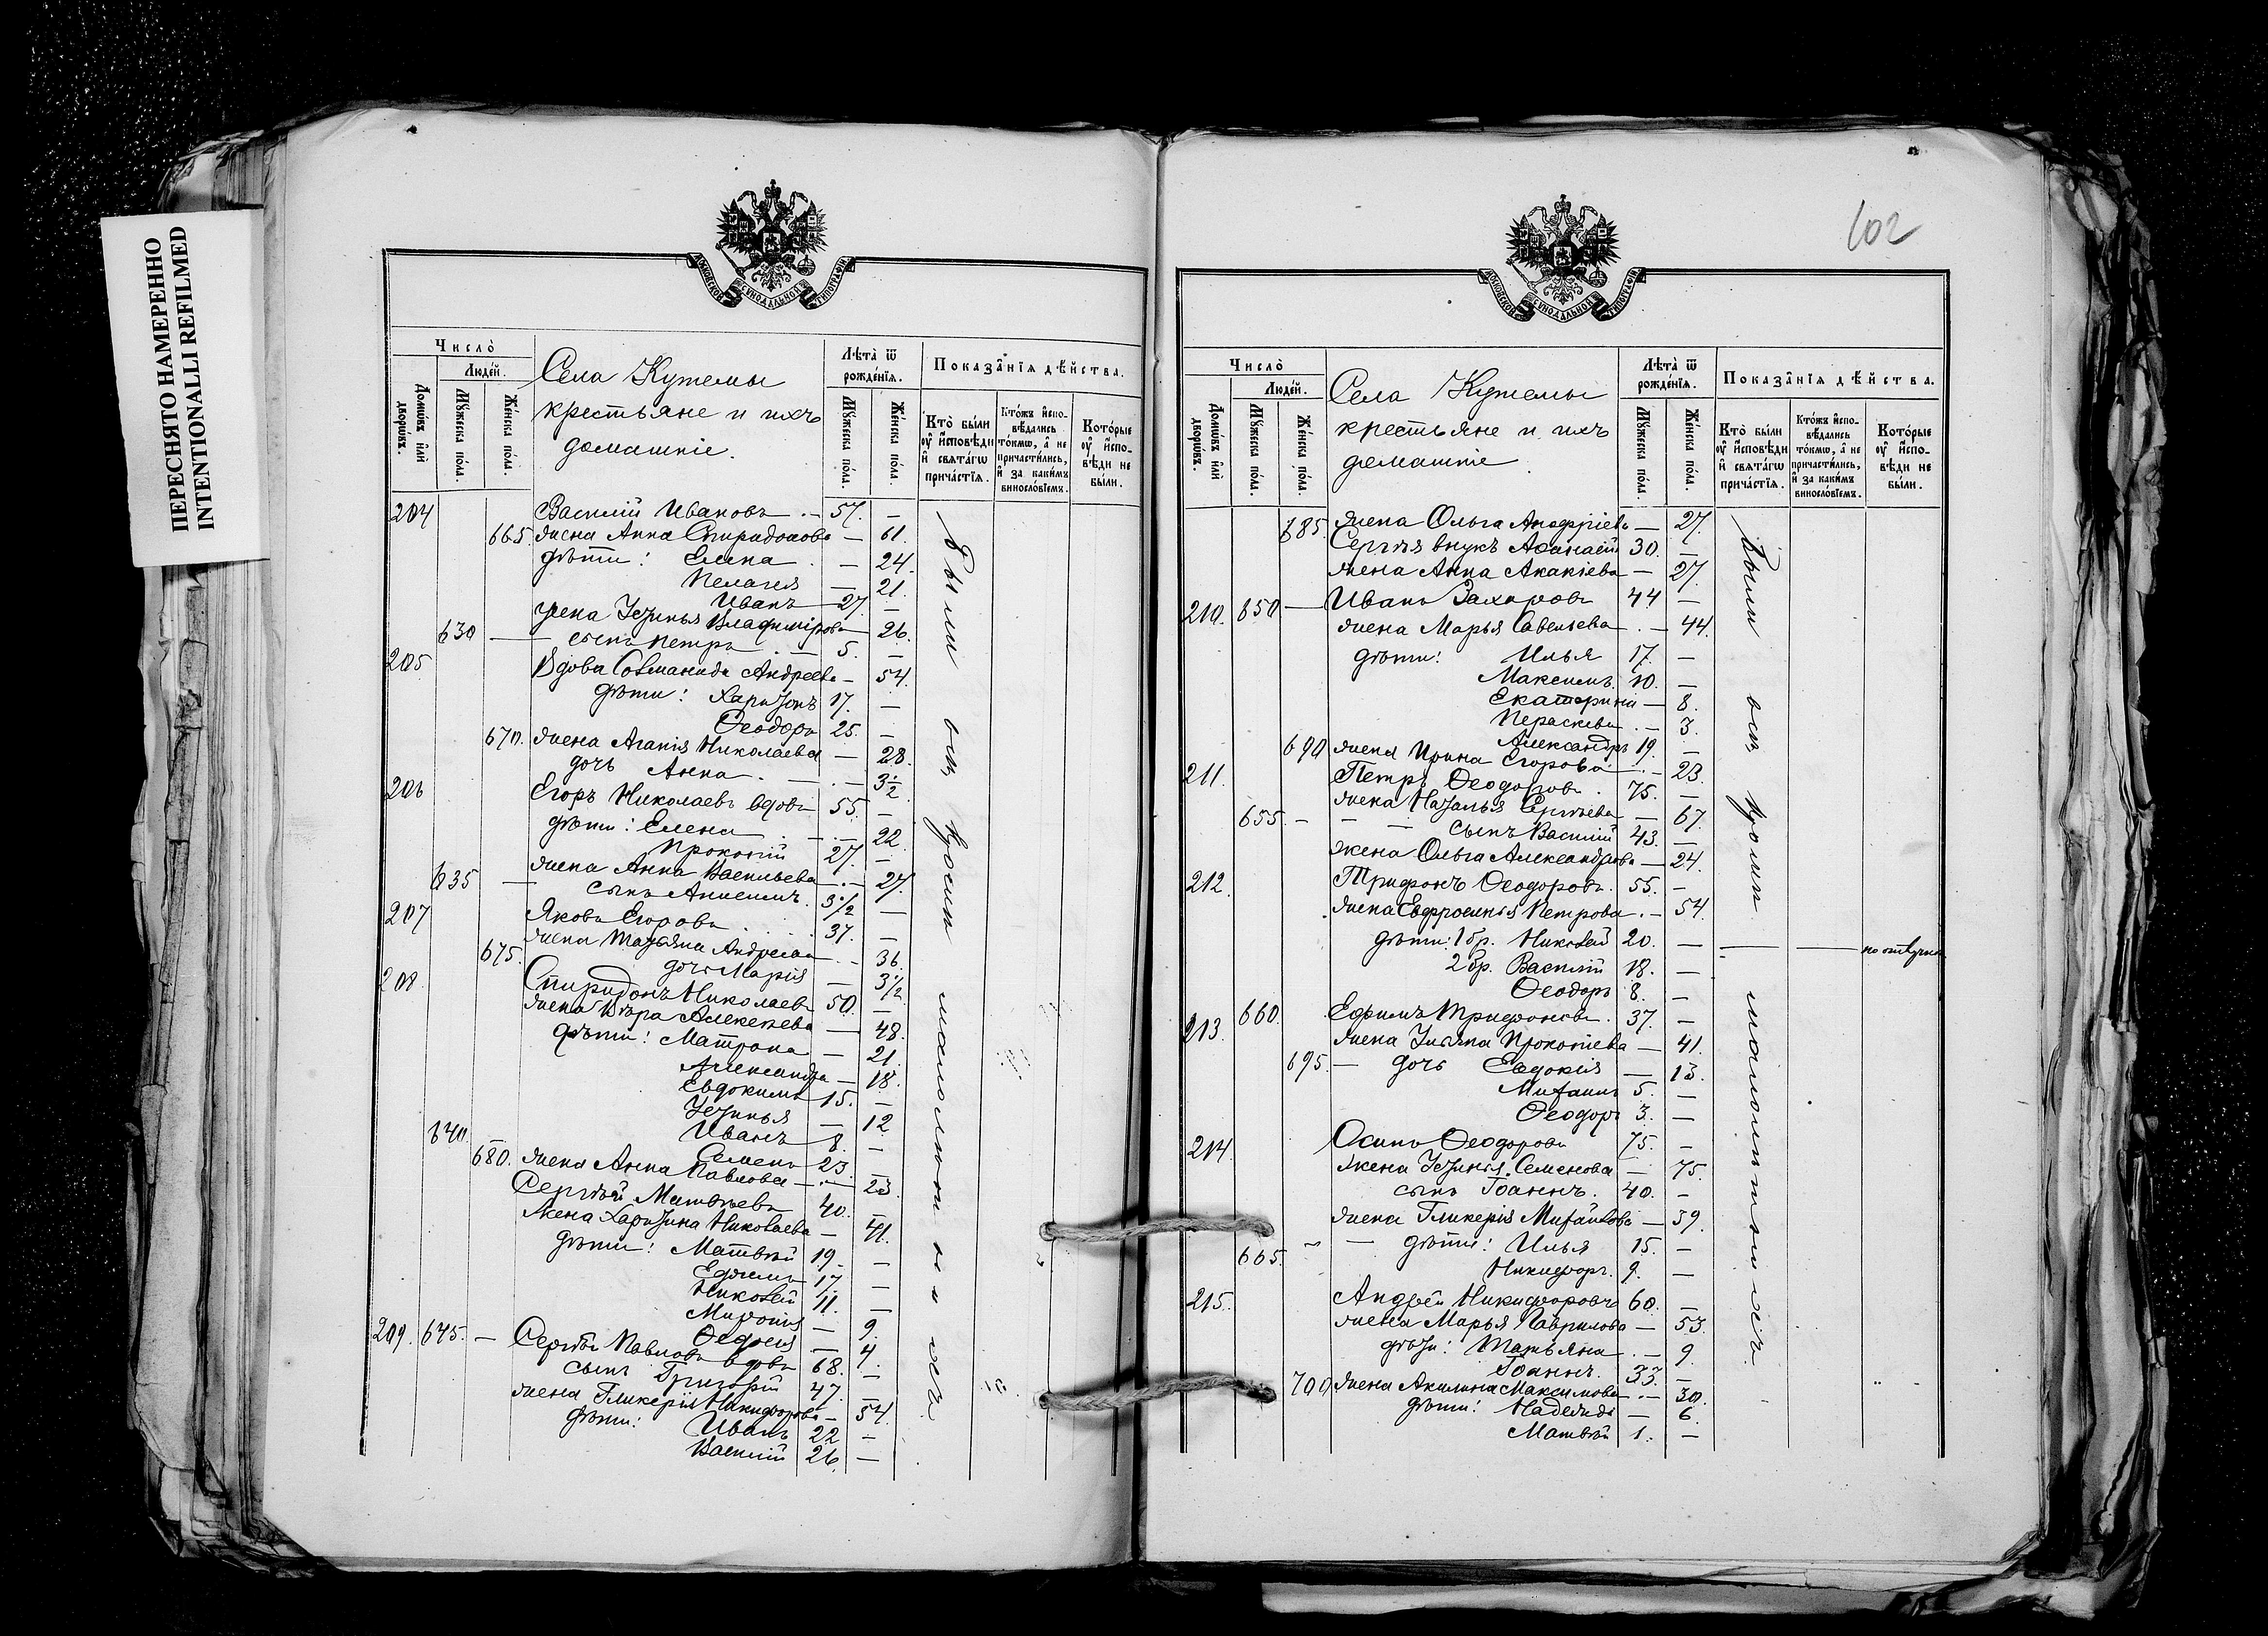 ПЕРЕСНЯТО НАМЕРЕННО
INTENTIONALLI REFILMED
МОСКОВСКОЙ СѴНОДАЛЬНОЙ ТИПОГРАФІИ
Число̀
Люде́й.
Домѡ́въ и҆лѝ дворѡ́въ.
Мꙋ́жеска по́ла.
Же́нска по́ла.
Села Кутемы
крестьяне и ихъ
домашніе.
Лѣ́та ѿ рожде́нїѧ.
Мꙋ́жеска по́ла.
Же́нска по́ла.
Показа̑нїѧ дѣ́йства.
Кто̀ бы́ли ᲂу҆ и҆сповѣ́ди и҆ свѧта́гѡ прича́стїѧ.
Кто́жъ и҆спо-вѣ́дались то́кмѡ, а҆ не причасти́лись, и҆ за каки́мъ виносло́вїемъ.
Кото́рые ᲂу҆ и҆спо-вѣ́ди не бы́ли.
204 Василій Ивановъ 57. —
665. жена Анна Спиридонова — 61.
дѣти: Елена — 24.
Пелагея — 21.
Иванъ 27. —
жена Устинья Владимірова — 26.
630 — сынъ Петръ 5. —
205 Вдова Андреева — 54.
дѣти: Харитонъ 17. —
Ѳеодоръ 25. —
670. жена Агапія Николаева — 28.
дочь Анна — 3 1/2
206 Егоръ Николаевъ вдовъ 55. —
дѣти: Елена — 22.
Прокопій 27. —
жена Анна Васильева — 27.
635 — сынъ Анисимъ 3 1/2 —
207 Яковъ Егоровъ 37. —
жена Татьяна Андреева — 36.
675. дочь Марія — 3 1/2
208. Спиридонъ Николаевъ 50. —
жена Вѣра Алексѣева — 48.
дѣти: Матрона — 21.
Александра — 18.
Евдокимъ 15. —
Устинья — 12
640 Иванъ 8. —
Семенъ 23. —
680. жена Анна Павлова — 23.
Сергѣй Матвѣевъ 40. —
жена Харитина Николаева — 41.
дѣти: Матвѣй 19. —
Ефимъ 17. —
Николай 11. —
— 9.
— 4.
209. 645. — Сергѣй Павловъ вдовъ 68. —
сынъ Григорій 47. —
жена Гликерія Никифорова — 54.
дѣти: Иванъ 22 —
Василій 26. —
Были
102
МОСКОВСКОЙ СѴНОДАЛЬНОЙ ТИПОГРАФІИ
Число̀
Люде́й.
Домѡ́въ и҆лѝ дворѡ́въ.
Мꙋ́жеска по́ла.
Же́нска по́ла.
Села Кутемы
крестьяне и ихъ
домашніе
Лѣ́та ѿ рожде́нїѧ.
Мꙋ́жеска по́ла.
Же́нска по́ла.
Показа̑нїѧ дѣ́йства.
Кто̀ бы́ли ᲂу҆ и҆сповѣ́ди и҆ свѧта́гѡ прича́стїѧ.
Кто́жъ и҆спо-вѣ́дались то́кмѡ, а҆ не причасти́лись, и҆ за каки́мъ виносло́вїемъ.
Кото́рые ᲂу҆ и҆спо-вѣ́ди не бы́ли.
685. жена Ольга — 27.
Сергѣя внукъ Аѳанасій 30. —
жена Анна Акакіева — 27.
210. 650 — Иванъ Захаровъ 44 —
жена Марья Савельева — 44.
дѣти: Илья 17. —
Максимъ 10. —
Екатерина — 8.
Пераскева — 3.
Александръ 19. —
690 жена Ирина Егорова — 23.
211. Петръ Ѳеодоровъ 75. —
жена Наталья Сергѣева — 67.
655. — сынъ Василій 43. —
жена Ольга Александрова — 24.
212. Трифонъ Ѳеодоровъ 55. —
жена Евфросинія Петрова — 54.
дѣти: 1 бр. Николай 20. — — — по отлучкѣ
2 бр. Василій 18. —
Ѳеодоръ 8. —
660. Ефимъ Трифоновъ 37. —
213. жена Ульяна Прокопіева — 41.
695. — дочь Евдокія — 13.
Михаилъ 5. —
Ѳеодоръ 3. —
214. Осипъ Ѳеодоровъ 75. —
жена Устинья Семенова — 75.
сынъ Іоаннъ. 40. —
жена Гликерія Михайлова — 39.
665. — дѣти: Илья 15. —
Никифоръ. 9. —
215. Андрей Никифоровъ 60. —
жена Марья Гаврилова — 53.
дѣти: Татьяна — 9.
Іоаннъ. 33. —
700 жена Акилина Максимова — 30.
дѣти: Надежда — 6.
Матвѣй 1. —
Были